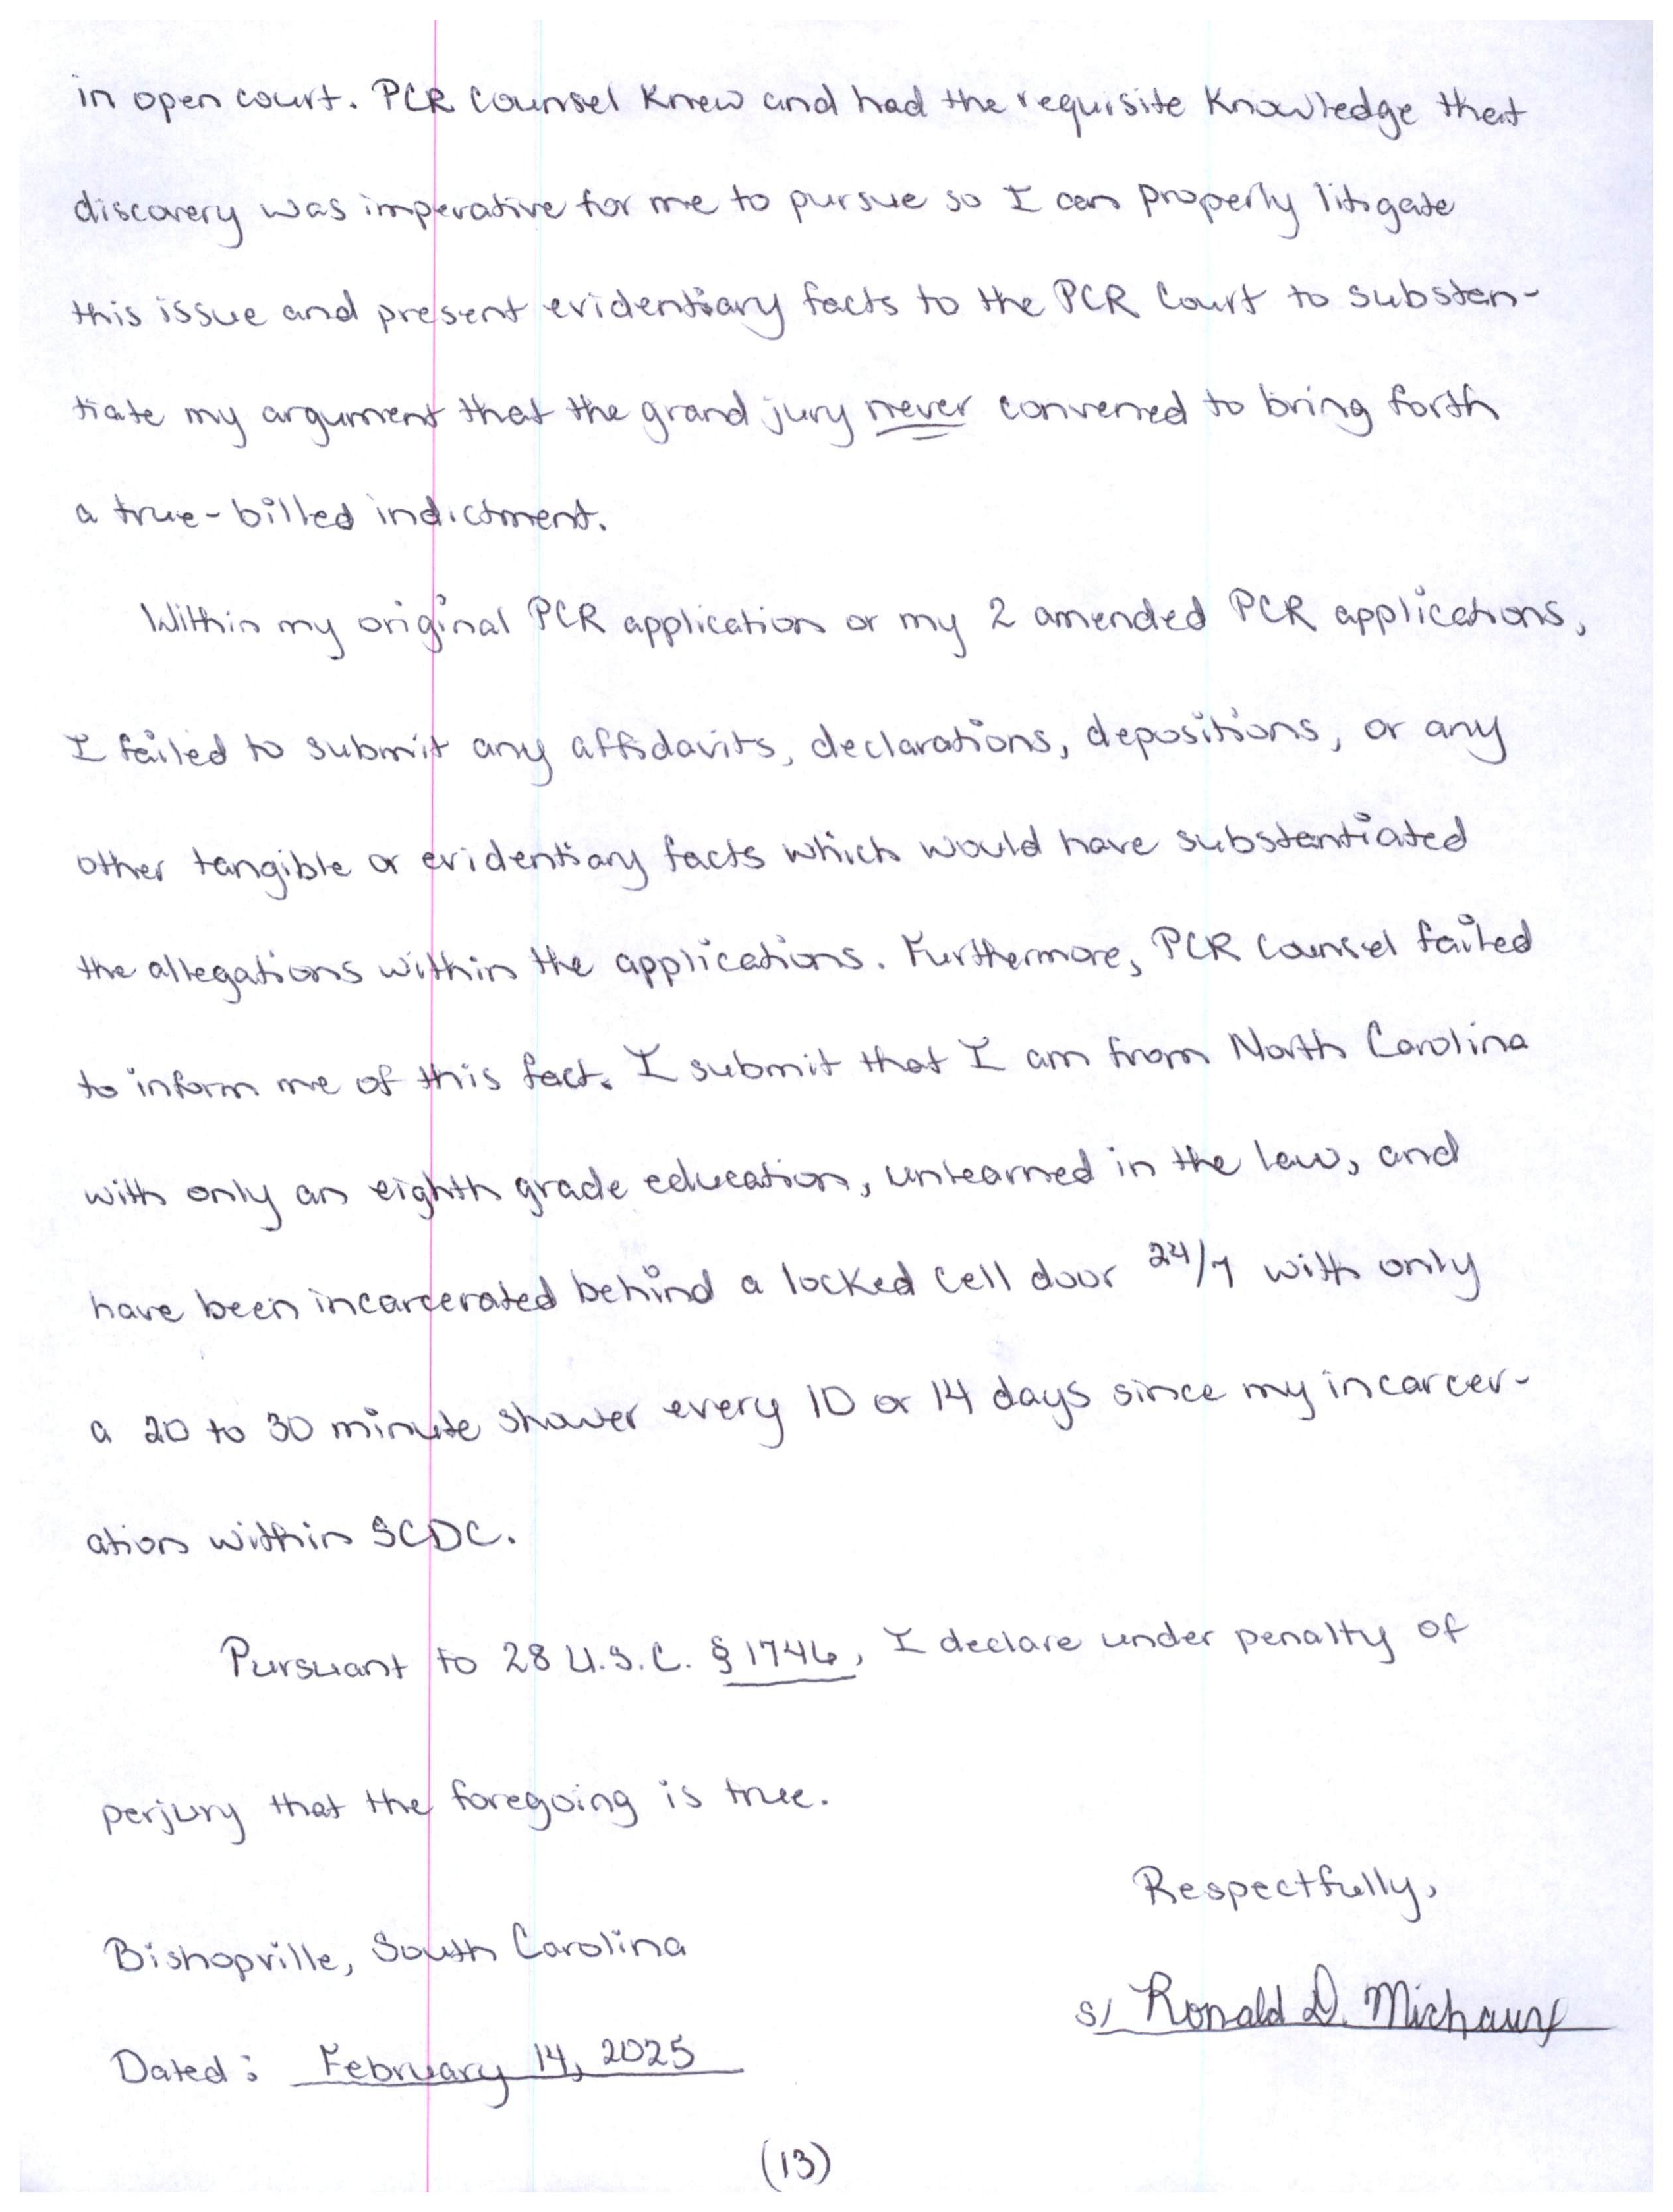 in open court. PCR Counsel knew and had the requisite knowledge that
discovery was imperative for me to pursue so I can properly litigate
this issue and present evidentiary facts to the PCR Court to substan-
tiate my argument that the grand jury never convened to bring forth
a true-billed indictment.
Within my original PCR application or my 2 amended PCR applications,
I failed to submit any affidavits, declarations, depositions, or any
other tangible or evidentiary facts which would have substantiated
the allegations within the applications. Furthermore, PCR Counsel failed
to inform me of this fact. I submit that I am from North Carolina
with only an eighth grade education, unlearned in the law, and
have been incarcerated behind a locked cell door 24/7 with only
a 20 to 30 minute shower every 10 or 14 days since my incarcer-
ation within SCDC.
Pursuant to 28 U.S.C. § 1746, I declare under penalty of
perjury that the foregoing is true.
Respectfully,
Bishopville, South Carolina
s/ Ronald D. Michaux
Dated: February 14, 2025
(13)